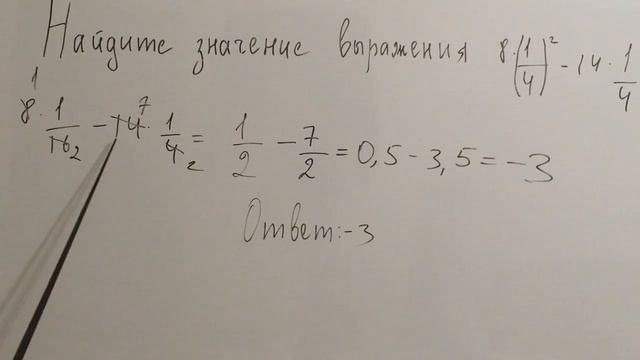 Найдите значение выражения 8·(1/4)² - 14·1/4
8·1/16 - 14·1/4 = 1/2 - 7/2 = 0,5 - 3,5 = -3
1 2 7 2
Ответ: -3